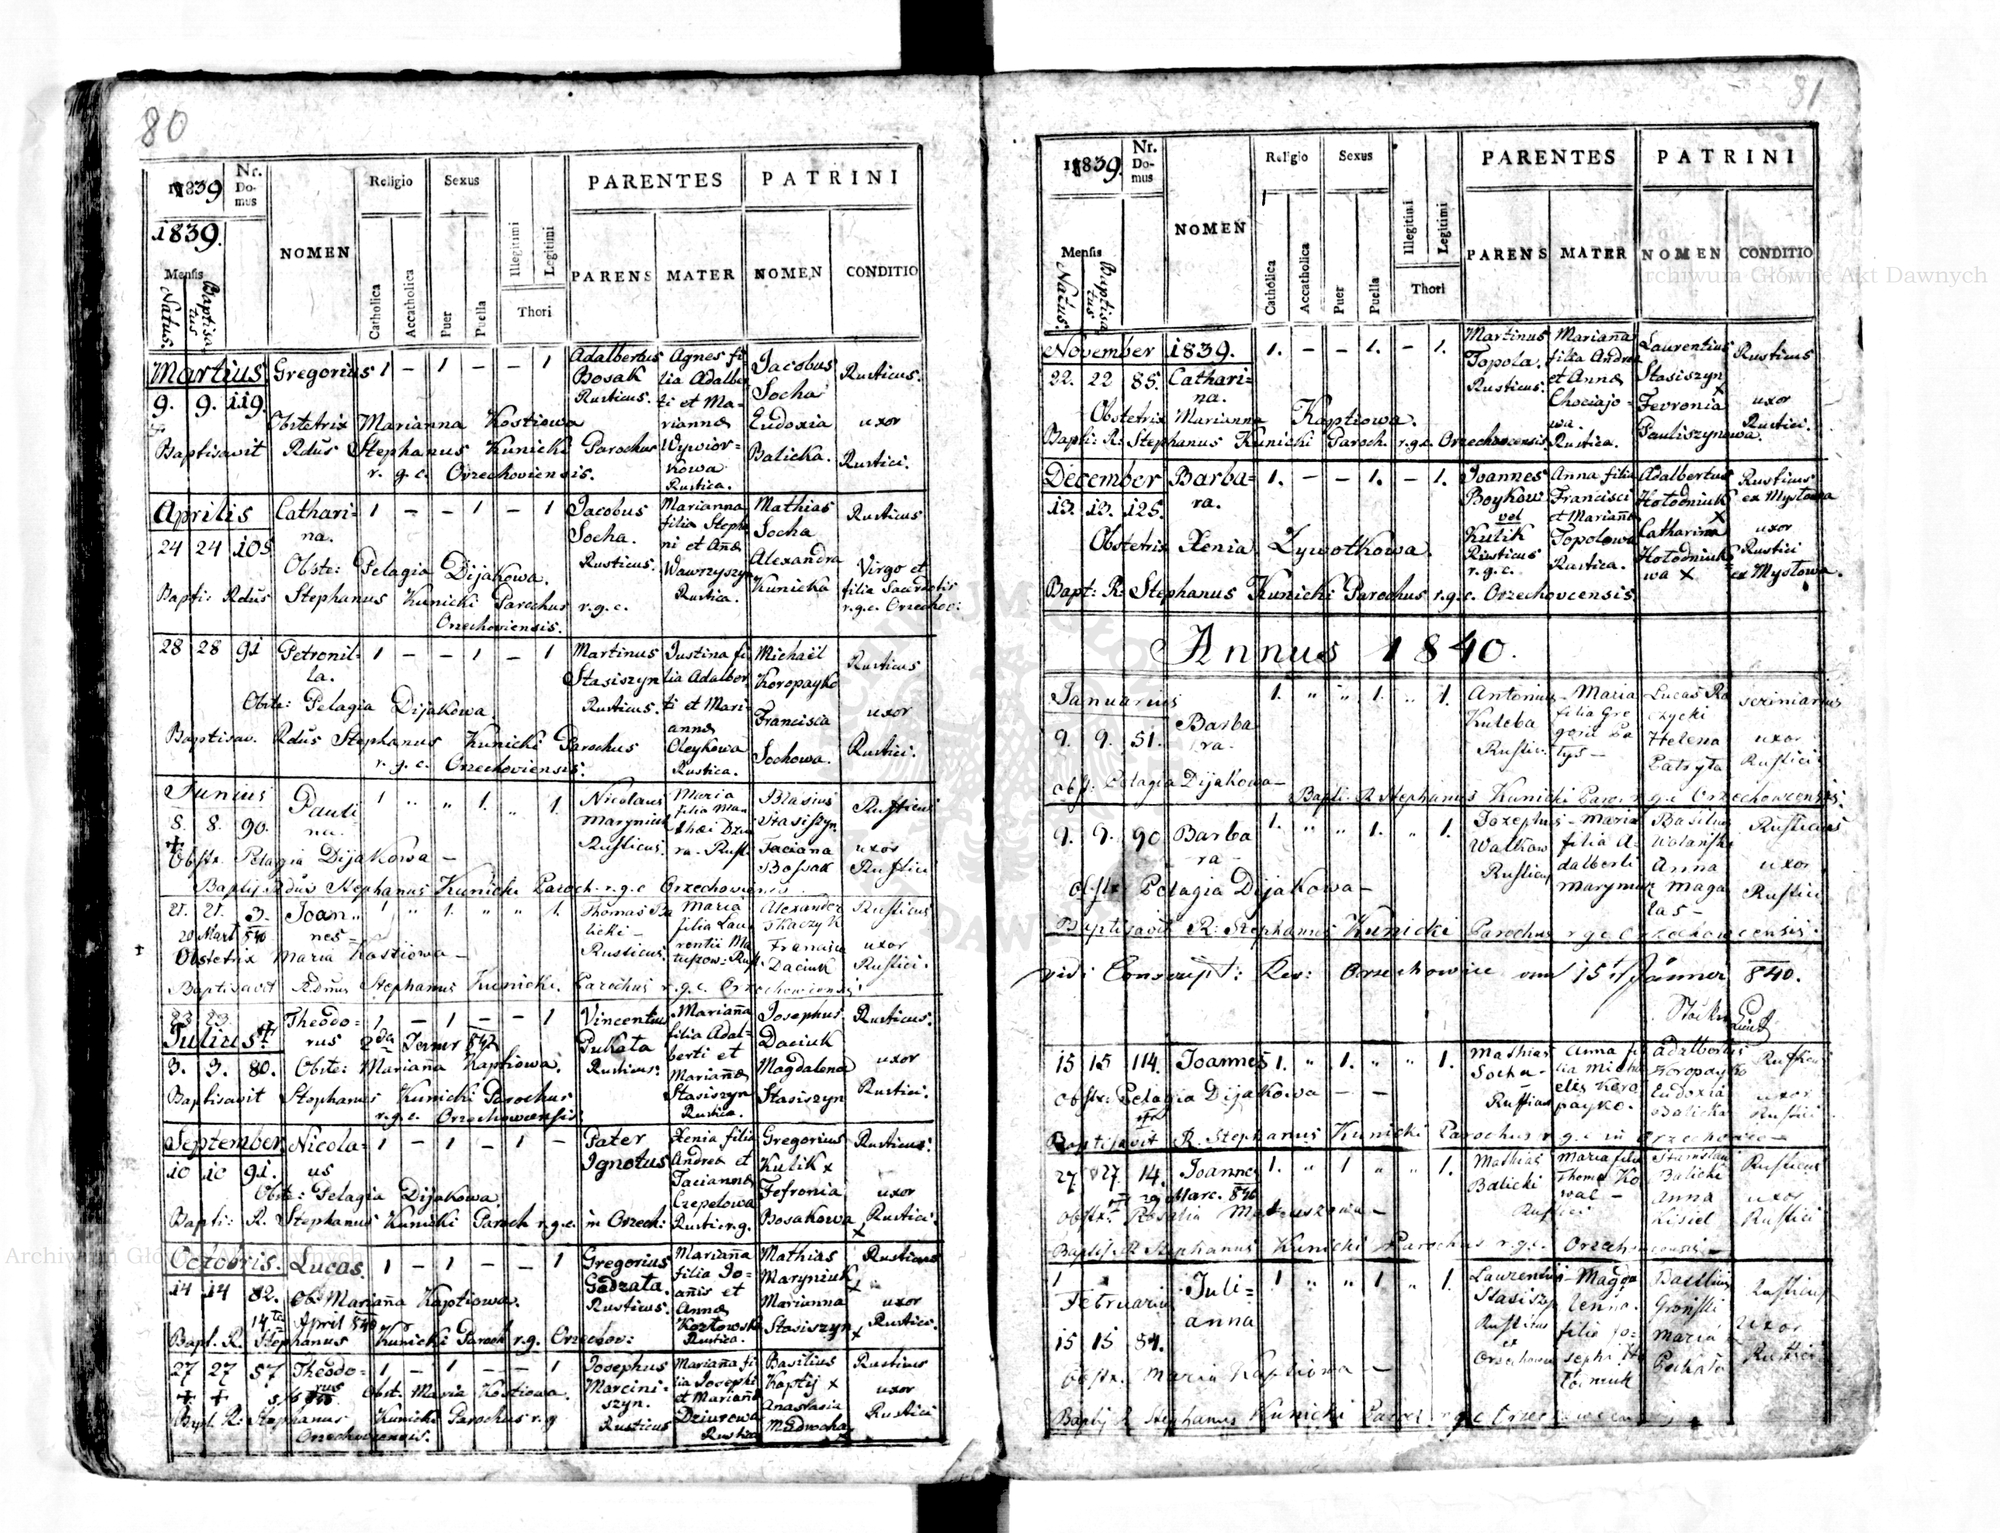 80
1839
Nr. Domus
NOMEN
Religio
Sexus
PARENTES
PATRINI
1839.
Mensis
Natus.
Baptisatus
Catholica
Accatholica
Puer
Puella
Illegitimi
Legitimi
Thori
PARENS
MATER
NOMEN
CONDITIO
Martius
9. 9. 119.
Gregorius 1 – 1 – – 1
Adalbertus Bosak Rusticus.
Agnes filia Adalberti et Mariannæ Wywiorkowa Rustica.
Jacobus Socha
Eudoxia Balicka.
Rusticus.
uxor Rustici.
Obstetrix Marianna Kostiowa
Baptisavit Rdus Stephanus Kunicki Parochus
r. g. c. Orzechoviensis.
Aprilis
24 24 105
Catharina. 1 – – 1 – 1
Jacobus Socha. Rusticus.
Marianna filia Stephani et Annæ Wawrzyszyn Rustica.
Mathias Socha
Alexandra Kunicka
Rusticus
Virgo et filia Sacerdotis r.g.c. Orzechov:
Obste: Pelagia Dijakowa.
Bapti: Rdus Stephanus Kunicki Parochus r.g.c.
Orzechoviensis.
28 28 91
Petronilla. 1 – – 1 – 1
Martinus Stasiszyn Rusticus.
Justina filia Adalberti et Mariannæ Oleykowa Rustica.
Michaël Koropayko
Francisca Sochowa.
Rusticus
uxor Rustici.
Obste: Pelagia Dijakowa
Baptisav. Rdus Stephanus Kunicki Parochus
r. g. c. Orzechoviensis.
Junius
8. 8. 90.
Paulina. 1 " " 1. " 1.
Nicolaus Maryniuk Rusticus.
Maria filia Mathæi Dziura
Blasius Stasiszyn
Taciana Bossak
Rusticus
uxor Rustici
Obstx. Pelagia Dijakowa –
Baptis Rdus Stephanus Kunicki Paroch. r.g.c Orzechoviensis
21. 21. 3.
20 Mart 840
Joannes – 1 " 1. " " 1.
Thomas Balicki – Rusticus.
Maria filia Laurentii
Alexander Tkaczyk
Francisca Daciuk
Rusticus
uxor Rustici.
Obstetrix Maria Kostiowa –
Baptisavit Rdnus Stephanus Kunicki. Parochus r.g.c. Orzechowiensis.
23 23
Julius
3. 3. 80.
Theodorus 1 – 1 – – 1
2da Jenner 842
Vincentius Pukata Rusticus.
Marianna filia Adalberti et Mariannæ Stasiszyn Rustica.
Josephus Daciuk
Magdalena Stasiszyn
Rusticus.
uxor Rustici.
Obste: Marianna Kaptiowa.
Baptisavit Stephanus Kunicki Parochus
r.g.c. Orzechowiensis
September
10 10 91.
Nicolaus 1 – 1 – 1 –
Pater Ignotus
Xenia filia Andreæ et Taciannæ Czepelowa Rustic r.g.
Gregorius Kulik x
Fefronia Bosakowa x
Rusticus.
uxor Rustici.
Obste: Pelagia Dijakowa
Bapti: R. Stephanus Kunicki Paroch r.g.c. in Orzech:
Octobris.
14 14 82.
Lucas. 1 – 1 – – 1
Gregorius Gadzata. Rusticus.
Marianna filia Joannis et Annæ Kozłowska Rustica.
Mathias Maryniuk x
Marianna Stasiszyn x
Rusticus
uxor Rustici.
Ob: Marianna Kaptiowa.
14 April 840
Bapt. R. Stephanus Kunicki Paroch r.g. Orzechov:
27 27 57
Theodorus 1 – 1 – – 1
Josephus Marciniszyn. Rusticus
Marianna filia Josephi et Mariannæ Dziurowa Rustica
Basilius Kaptij x
Anastasia Mudrocha
Rusticus
uxor Rustici
Obst. Maria Kostiowa.
Bapt. R. Stephanus Kunicki Parochus r.g
Orzechoviensis.
81
1839.
Nr. Domus
NOMEN
Religio
Sexus
PARENTES
PATRINI
Mensis
Natus.
Baptisatus
Catholica
Accatholica
Puer
Puella
Illegitimi
Legitimi
Thori
PARENS
MATER
NOMEN
CONDITIO
November 1839.
22. 22 85.
Catharina. 1. – – 1. – 1.
Martinus Topola. Rusticus.
Marianna filia Andreæ et Annæ Chociajowa. Rustica.
Laurentius Stasiszyn x
Fevronia Pauliszynowa.
Rusticus
uxor Rustici.
Obstetrix Marianna Kaptiowa.
Bapti: R. Stephanus Kunicki Paroch. r.g.c. Orzechovcensis
December
13. 13. 125.
Barbara. 1. – – 1. – 1.
Joannes Boykow vel Kulik Rusticus r.g.c.
Anna filia Francisci et Mariannæ Topolowa Rustica.
Adalbertus Hołodniuk x
Catharina Hołodniukowa x
Rusticus ex Mysłowa
uxor Rustici ex Mysłowa.
Obstetrix Xenia Zywotkowa.
Bapt: R. Stephanus Kunicki Parochus r.g.c. Orzechovcensis.
Annus 1840.
Januarius
9. 9. 51.
Barbara. 1. " " 1. " 1.
Antonius Kuleba Rustic.
Maria filia Gregorii
Lucas
Helena Patryla
scriniarius
uxor Rustici
obst. Pelagia Dijakowa –
Bapti. R Stephanus Kunicki Paro. r.g.c Orzechowcensis.
9. 9. 90
Barbara – 1. " " 1. " 1.
Jozephus Walkow Rusticus
Maria filia Adalberti Maryniuk
Basilius
Anna Magalas –
Rusticus
uxor Rustici
obstx Pelagia Dijakowa –
Baptisavit R. Stephanus Kunicki Parochus r g c Orzechowcensis.
vidi Conscript: Rev: Orzechowice am 15t Jänner 840.
15 15 114.
Joannes 1. " 1. " " 1.
Mathias Socha – Rusticus
Anna filia Michaelis Koropayko.
Adalbertus Koropayko
Eudoxia Balicka
Rusticus
uxor Rustici
obstx: Pelagia Dijakowa – –
Baptisavit R. Stephanus Kunicki Parochus r. g. c in Orzechowice –
27 27. 14.
Joannes 1. " 1 " " 1.
29 Marc. 840
Mathias Balicki Rustici
Maria filia Thomæ Kowal –
Stanislaus Balicki
Anna Kisiel
Rusticus
uxor Rustici
obstx: Rosalia Matuszowa –
Baptis R Stephanus Kunicki Parochus r.g.c. Orzechowcensis –
Februarius
15 15 84.
Julianna 1 " " 1 " 1.
Laurentius Stasiszyn Rusticus ex Orzechowce
Magdalena. filia Josephi
Basilius Gronski
Maria Puckata
Rusticus
uxor Rustici
obstx. Maria Kaptiowa –
Baptis R Stephanus Kunicki Paroch r.g.c Orzechowcen
Archiwum Główne Akt Dawnych
Archiwum Główne Akt Dawnych